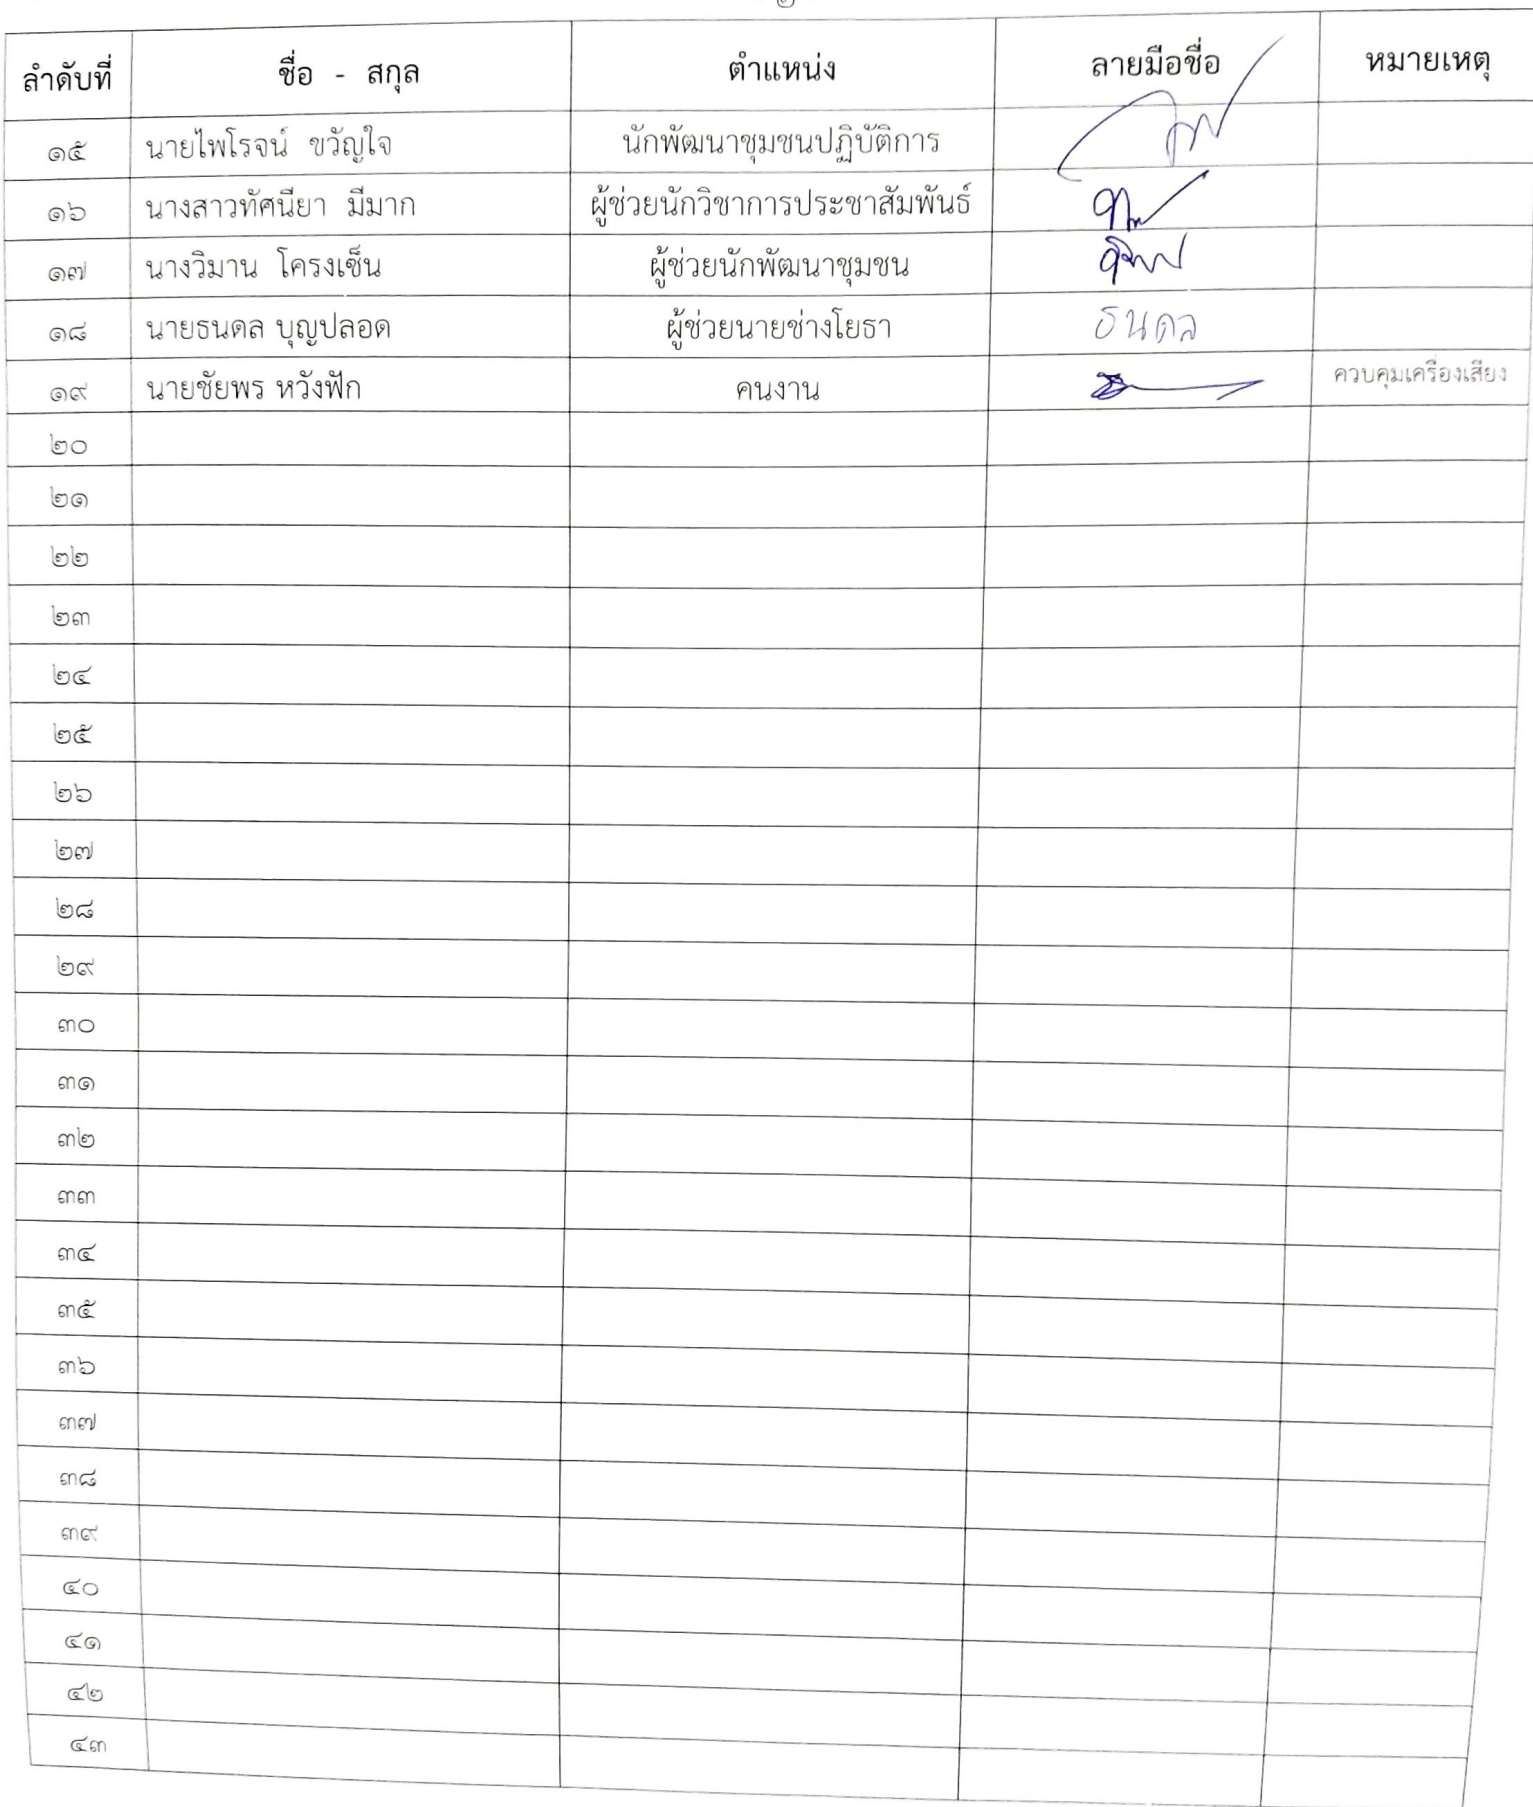 ๒
ลำดับที่ ชื่อ - สกุล ตำแหน่ง ลายมือชื่อ หมายเหตุ
๑๕ นายไพโรจน์ ขวัญใจ นักพัฒนาชุมชนปฏิบัติการ
๑๖ นางสาวทัศนียา มีมาก ผู้ช่วยนักวิชาการประชาสัมพันธ์
๑๗ นางวิมาน โครงเซ็น ผู้ช่วยนักพัฒนาชุมชน
๑๘ นายธนดล บุญปลอด ผู้ช่วยนายช่างโยธา ธนดล
๑๙ นายชัยพร หวังฟัก คนงาน ควบคุมเครื่องเสียง
๒๐
๒๑
๒๒
๒๓
๒๔
๒๕
๒๖
๒๗
๒๘
๒๙
๓๐
๓๑
๓๒
๓๓
๓๔
๓๕
๓๖
๓๗
๓๘
๓๙
๔๐
๔๑
๔๒
๔๓